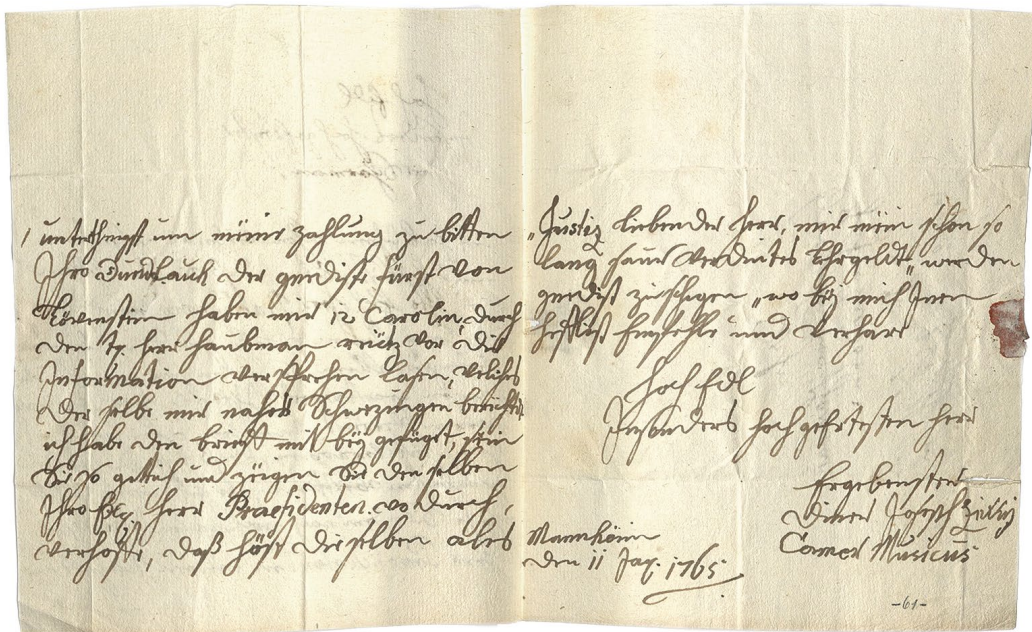 unterthingst um meine zahlung zu bitten
Ihro Durchlauch der gnediste fürst von
Lövenstein haben mir 12 Carolin durch
den herr haubman vor die
Information versprehen lasen, velches
der selbe mir naher Schwezingen berichtet
ich habe den brieff mit bey gefüget, sein
Sie so gettich und zeigen Sie den selben
Ihro herr Praesidenten. vo durch,
verhoffe, daß höst die selben ales
Justiz liebender herr, mir mein schon so
lang saur verdintes Lehrgeldt, werden
gnedist zu , wo bey mich Inen
hefflist Empfehle und verhare
Hoch Edl
Insonders hoch geehrtesten herr
Ergebenster
diner Joseph
Camer Musicus
Mannheim
den 11 1765
-61-